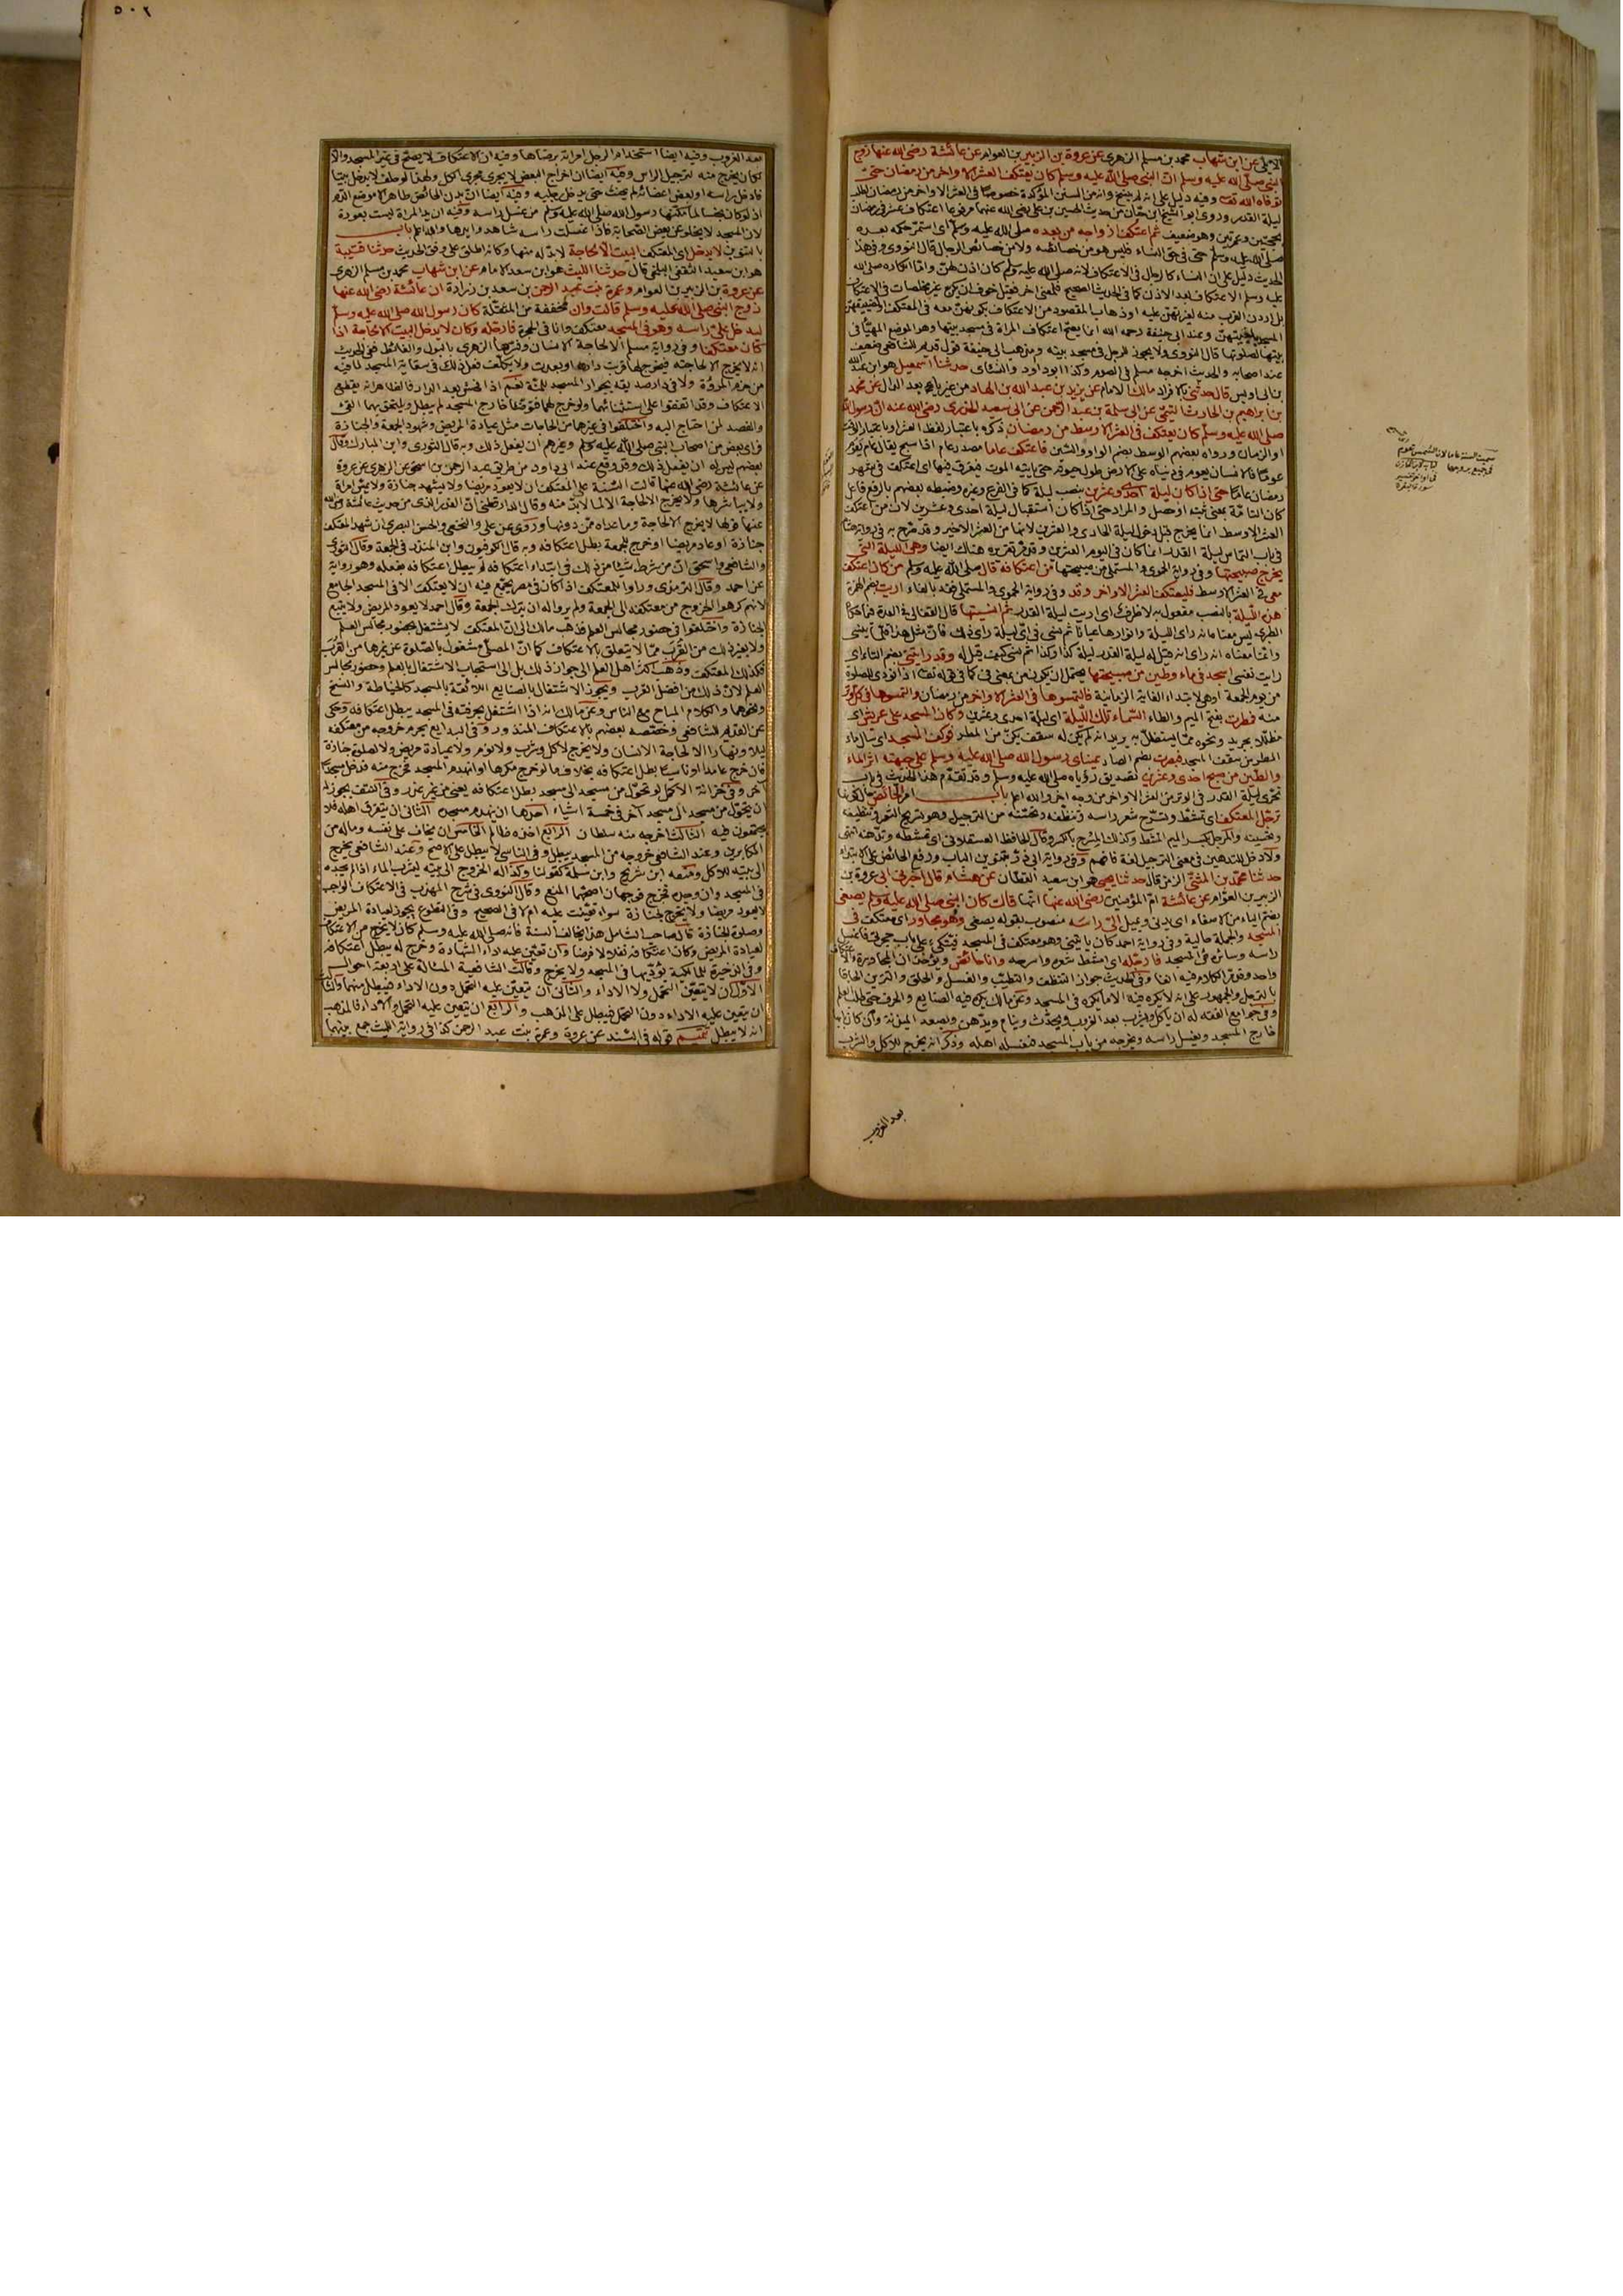 الايلي عن ابن شهاب محمد بن مسلم الزهري عن عروة بن الزبير بن العوام عن عائشة رضي الله عنها زوج
النبي صلى الله عليه وسلم ان النبي صلى الله عليه وسلم كان يعتكف العشر الاواخر من رمضان حتى
توفاه الله تعالى وفيه دليل على انه لم ينسخ وانه من السنن المؤكدة خصوصا في العشر الاواخر من رمضان لطلب
ليلة القدر وروى ابو الشيخ ابن حيان من حديث الحسين بن علي رضي الله عنهما مرفوعا اعتكاف عشر في رمضان
بحجتين وعمرتين وهو ضعيف ثم اعتكف ازواجه من بعده صلى الله عليه وسلم اي استمر حكمه بعده
صلى الله عليه وسلم حتى في حق النساء فليس هو من خصائصه ولا من خصائص الرجال قال النووي وفي هذا
الحديث دليل على ان النساء كالرجال في الاعتكاف لانه صلى الله عليه وسلم كان اذن لهن واما انكاره صلى الله
عليه وسلم الاعتكاف بعد الاذن كما في الحديث الصحيح فلمعنى اخر فقيل خوف ان يكن غير مخلصات في الاعتكاف
بل اردن القرب منه لغيرتهن عليه او ذهاب المقصود من الاعتكاف بكونهن معه في المعتكف او لتضييقهن
المسجد بابنيتهن وعند ابي حنيفة رحمه الله انما يصح اعتكاف المراة في مسجد بيتها وهو الموضع المهيأ في
بيتها لصلوتها قال النووي ولا يجوز للرجل في مسجد بيته ومذهب ابي حنيفة قول قديم للشافعي ضعيف
عند اصحابه والحديث اخرجه مسلم في الصوم وكذا ابو داود والنسائي حدثنا اسمعيل هو ابن عبد الله
بن ابي اويس قال حدثني بالافراد مالك الامام عن يزيد بن عبد الله بن الهاد من غير ياء بعد الدال عن محمد
بن ابراهيم بن الحارث التيمي عن ابي سلمة بن عبد الرحمن عن ابي سعيد الخدري رضي الله عنه ان رسول الله
صلى الله عليه وسلم كان يعتكف في العشر الاوسط من رمضان ذكره باعتبار لفظ العشر او باعتبار الوقت
او الزمان ورواه بعضهم الوسط بضم الواو والسين فاعتكف عاما مصدر عام اذا سبح يقال عام يعوم
عوما فالانسان يعوم في دنياه على الارض طول حيوته حتى ياتيه الموت فيغرق فيها اي اعتكف في شهر
رمضان عاما حتى اذا كان ليلة احدى وعشرين بنصب ليلة كما في الفرع وغيره وضبطه بعضهم بالرفع فاعل
كان التامة بمعنى ثبت او حصل والمراد حتى اذا كان استقبال ليلة احدى وعشرين لان من اعتكف
العشر الاوسط انما يخرج قبل دخول ليلة الحادي والعشرين لانها من العشر الاخير وقد صرح به في رواية هشام
في باب التماس ليلة القدر انما كان في اليوم العشرين وقد مر تقريره هناك ايضا وهي الليلة التي
يخرج صبيحتها وفي رواية الحموي والمستملي من صبيحتها من اعتكافه قال صلى الله عليه وسلم من كان اعتكف
معي في العشر الاوسط فليعتكف العشر الاواخر وقد وفي رواية الحموي والمستملي فقد بالفاء اريت بضم الهمزة
هذه الليلة بالنصب مفعول به لا ظرف اي اريت ليلة القدر ثم انسيتها قال القفال في العدة فيما حكاه
الطبري ليس معناه انه راى الليلة والانوار عيانا ثم نسي في اي ليلة راى ذلك فان مثل هذا قل ان ينسى
وانما معناه انه راى انه قيل له ليلة القدر ليلة كذا وكذا ثم نسي كيف قيل له وقد رايتني بضم التاء اي
رايت نفسي اسجد في ماء وطين من صبيحتها يحتمل ان يكون من بمعنى في كما في قوله تعالى اذا نودي للصلوة
من يوم الجمعة او هي لابتداء الغاية الزمانية فالتمسوها في العشر الاواخر من رمضان والتمسوها في كل وتر
منه فمطرت بفتح الميم والطاء السماء تلك الليلة اي ليلة احدى وعشرين وكان المسجد على عريش اي
مظللا بجريد ونحوه مما يستظل به يريد انه لم يكن له سقف يكن من المطر فوكف المسجد اي سال ماء
المطر من سقف المسجد فبصرت بضم الصاد عيناي رسول الله صلى الله عليه وسلم على جبهته اثر الماء
والطين من صبح احدى وعشرين تصديق رؤياه صلى الله عليه وسلم وقد تقدم هذا الحديث في باب
تحري ليلة القدر في الوتر من العشر الاواخر من وجه اخر والله اعلم باب امر الحائض حال كونها
ترجل المعتكف اي تمشط وتسرح شعر راسه وتنظفه وتحسنه من الترجيل وهو تسريح الشعر وتنظيفه
وتحسينه والمرجل بكسر الميم المشط وكذلك المسرح بالكسر وقال الحافظ العسقلاني اي تمشطه وتدهنه انتهى
ولا دخل للتدهين في معنى الترجيل لغة فافهم وفي رواية ابي ذر بتنوين الباب ورفع الحائض على الابتداء
حدثنا محمد بن المثنى الزمن قال حدثنا يحيى هو ابن سعيد القطان عن هشام قال اخبرني ابي عروة بن
الزبير بن العوام عن عائشة ام المؤمنين رضي الله عنها انها قالت كان النبي صلى الله عليه وسلم يصغي
بضم الياء من الاصغاء اي يدني ويميل الي راسه منصوب بقوله يصغي وهو مجاور اي معتكف في
المسجد والجملة حالية وفي رواية احمد كان ياتيني وهو معتكف في المسجد فيتكئ على باب حجرتي فاغسل
راسه وسائره في المسجد فارجله اي امشط شعره واسرحه وانا حائض ويؤخذ ان المجاورة والاعتكاف
واحد وقد مر الكلام فيه انفا وفي الحديث جواز التنظف والتطيب والغسل والحلق والتزين الحاقا
بالترجل والجمهور على انه لا يكره فيه الا ما يكره في المسجد وعن مالك يكره فيه الصنايع والحرف حتى طلب العلم
وفي جوامع الفقه له ان ياكل ويشرب بعد الغروب ويحدث وينام ويدهن ويصعد الميذنة وان كان بابها
خارج المسجد ويغسل راسه ويخرجه من باب المسجد فيغسله اهله وذكر انه يخرج للاكل والشرب
بعد الغروب
٥٠٢
بعد الغروب وفيه ايضا استخدام الرجل امراته برضاها وفيه ان الاعتكاف لا يصح في غير المسجد والا
لكان يخرج منه لترجيل الراس وفيه ايضا ان اخراج البعض لا يجري مجرى الكل ولهذا لو حلف لا يدخل بيتا
فادخل راسه او بعض اعضائه لم يحنث حتى يدخل رجليه وفيه ايضا ان بدن الحائض طاهر الا موضع الدم
اذ لو كان نجسا لما مكنها رسول الله صلى الله عليه وسلم من غسل راسه وفيه ان يد المراة ليست بعورة
لان المسجد لا يخلو عن بعض الصحابة فاذا غسلت راسه شاهدوا يدها والله اعلم باب
بالتنوين لا يدخل اي المعتكف البيت الا لحاجة لا بد له منها وكانه اطلق على وفق الحديث حدثنا قتيبة
هو ابن سعيد الثقفي البلخي قال حدثنا الليث هو ابن سعد الامام عن ابن شهاب محمد بن مسلم الزهري
عن عروة بن الزبير بن العوام وعمرة بنت عبد الرحمن بن سعد بن زرارة ان عائشة رضي الله عنها
زوج النبي صلى الله عليه وسلم قالت وان مخففة من المثقلة كان رسول الله صلى الله عليه وسلم
ليدخل علي راسه وهو في المسجد معتكف وانا في الحجرة فارجله وكان لا يدخل البيت الا لحاجة اذا
كان معتكفا وفي رواية مسلم الا لحاجة الانسان وفسرها الزهري بالبول والغائط ففي الحديث
انه لا يخرج الا لحاجته فيخرج لهما قربت داره او بعدت ولا يكلف فعل ذلك في سقاية المسجد لما فيه
من خرم المروة ولا في دار صديقه بجوار المسجد للمنة نعم اذا فحش بعد الدار فالظاهر انه يقطع
الاعتكاف وقد اتفقوا على استثنائهما ولو خرج لهما فتوضا خارج المسجد لم يبطل ويلتحق بهما القيء
والفصد لمن احتاج اليه واختلفوا في غيرهما من الحاجات مثل عيادة المريض وشهود الجمعة والجنازة
فراى بعض من اصحاب النبي صلى الله عليه وسلم وغيرهم ان يفعل ذلك وبه قال الثوري وابن المبارك وقال
بعضهم ليس له ان يفعل ذلك وقد وقع عند ابي داود من طريق عبد الرحمن بن اسحق عن الزهري عن عروة
عن عائشة رضي الله عنها قالت السنة على المعتكف ان لا يعود مريضا ولا يشهد جنازة ولا يمس امراة
ولا يباشرها ولا يخرج الا لحاجة الا لما لا بد منه وقال الدارقطني ان القدر الذي من حديث عائشة رضي الله
عنها قولها لا يخرج الا لحاجة وما عداه ممن دونها وروي عن علي والنخعي والحسن البصري ان شهد المعتكف
جنازة او عاد مريضا او خرج للجمعة بطل اعتكافه وبه قال الكوفيون وابن المنذر في الجمعة وقال الثوري
والشافعي واسحق ان من شرط شيئا من ذلك في ابتداء اعتكافه لم يبطل اعتكافه بفعله وهو رواية
عن احمد وقال الترمذي وراوا للمعتكف اذا كان في مصر يجمع فيه ان لا يعتكف الا في المسجد الجامع
لانهم كرهوا الخروج من معتكفه الى الجمعة ولم يروا له ان يترك الجمعة وقال احمد لا يعود المريض ولا يتبع
الجنازة واختلفوا في حضور مجالس العلم فذهب مالك الى ان المعتكف لا يشتغل بحضور مجالس العلم
ولا بغير ذلك من القرب مما لا يتعلق بالاعتكاف كما ان المصلي مشغول بالصلوة عن غيرها من القرب
فكذلك المعتكف وذهب اكثر اهل العلم الى جواز ذلك بل الى استحباب الاشتغال بالعلم وحضور مجالس
العلم لان ذلك من افضل القرب ويجوز الاشتغال بالصنايع اللائقة بالمسجد كالخياطة والنسخ
ونحوهما والكلام المباح مع الناس وعن مالك انه اذا اشتغل بحرفته في المسجد يبطل اعتكافه وحكي
عن القديم للشافعي وخصصه بعضهم بالاعتكاف المنذور وفي البدايع يحرم خروجه من معتكفه
ليلا ونهارا الا لحاجة الانسان ولا يخرج لاكل وشرب ولا نوم ولا عيادة مريض ولا لصلوة جنازة
فان خرج عامدا او ناسيا بطل اعتكافه بخلاف ما لو خرج مكرها او انهدم المسجد فخرج منه فدخل مسجدا
آخر وفي خزانة الاكمل لو تحول من مسجد الى مسجد بطل اعتكافه يعني من غير عذر وفي النتف يجوز له
ان يتحول من مسجد الى مسجد آخر في خمسة اشياء احدها ان ينهدم مسجده الثاني ان يتفرق اهله فلا
يجتمعون فيه الثالث اخرجه منه سلطان الرابع اخذه ظالم الخامس ان يخاف على نفسه وماله من
المكابرين وعند الشافعي خروجه من المسجد يبطل وفي الناسي لا يبطل على الاصح وعند الشافعي يخرج
الى بيته للاكل ومنعه ابن شريح وابن سلمة كقولنا وكذا له الخروج الى بيته ليشرب الماء اذا لم يجده
في المسجد وان وجده فخرج فوجهان اصحهما المنع وقال النووي في شرح المهذب في الاعتكاف الواجب
لا يعود مريضا ولا يخرج لجنازة سواء تعينت عليه ام لا في الصحيح وفي التطوع يجوز لعيادة المريض
وصلوة الجنازة قال صاحب الشامل هذا يخالف السنة فانه صلى الله عليه وسلم كان لا يخرج من الاعتكاف
لعيادة المريض وكان اعتكافه نفلا لا فرضا وان تعين عليه اداء الشهادة وخرج له يبطل اعتكافه
وفي الذخيرة للمالكية يؤديها في المسجد ولا يخرج وقالت الشافعية المسالة على اربعة احوال
الاول ان لا يتعين التحمل ولا الاداء والثاني ان يتعين عليه التحمل دون الاداء فيبطل منهما والثالث
ان يتعين عليه الاداء دون التحمل فيبطل على المذهب والرابع ان يتعين عليه التحمل والاداء فالمذهب
انه لا يبطل تتميم قوله في السند عن عروة وعمرة بنت عبد الرحمن كذا في رواية الليث جمع بينهما